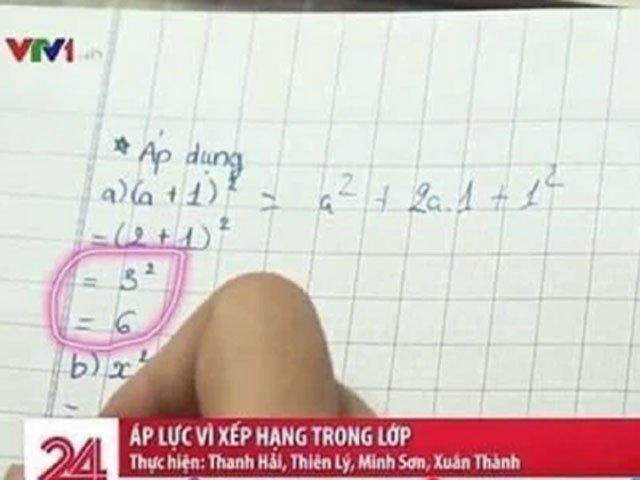 VTV1
* Áp dụng
a)(a + 1)² = a² + 2a.1 + 1²
= (2 + 1)²
= 3²
= 6
b) x²
=
24
ÁP LỰC VÌ XẾP HẠNG TRONG LỚP
Thực hiện: Thanh Hải, Thiên Lý, Minh Sơn, Xuân Thành